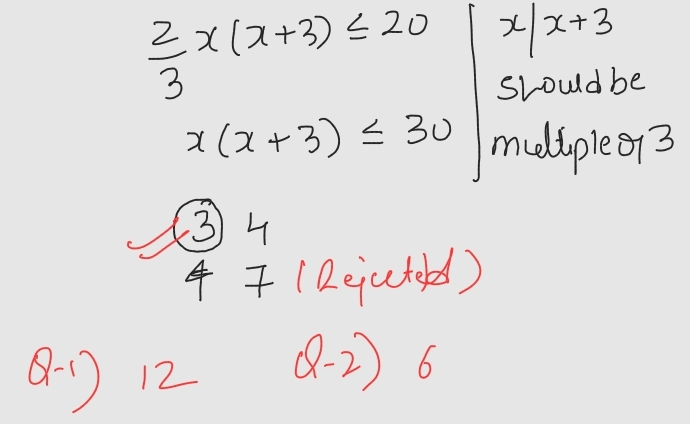 2/3 x(x+3) ≤ 20
x(x+3) ≤ 30
x/x+3
should be
multiple of 3
3 4
4 7 (Rejected)
Q-1) 12
Q-2) 6